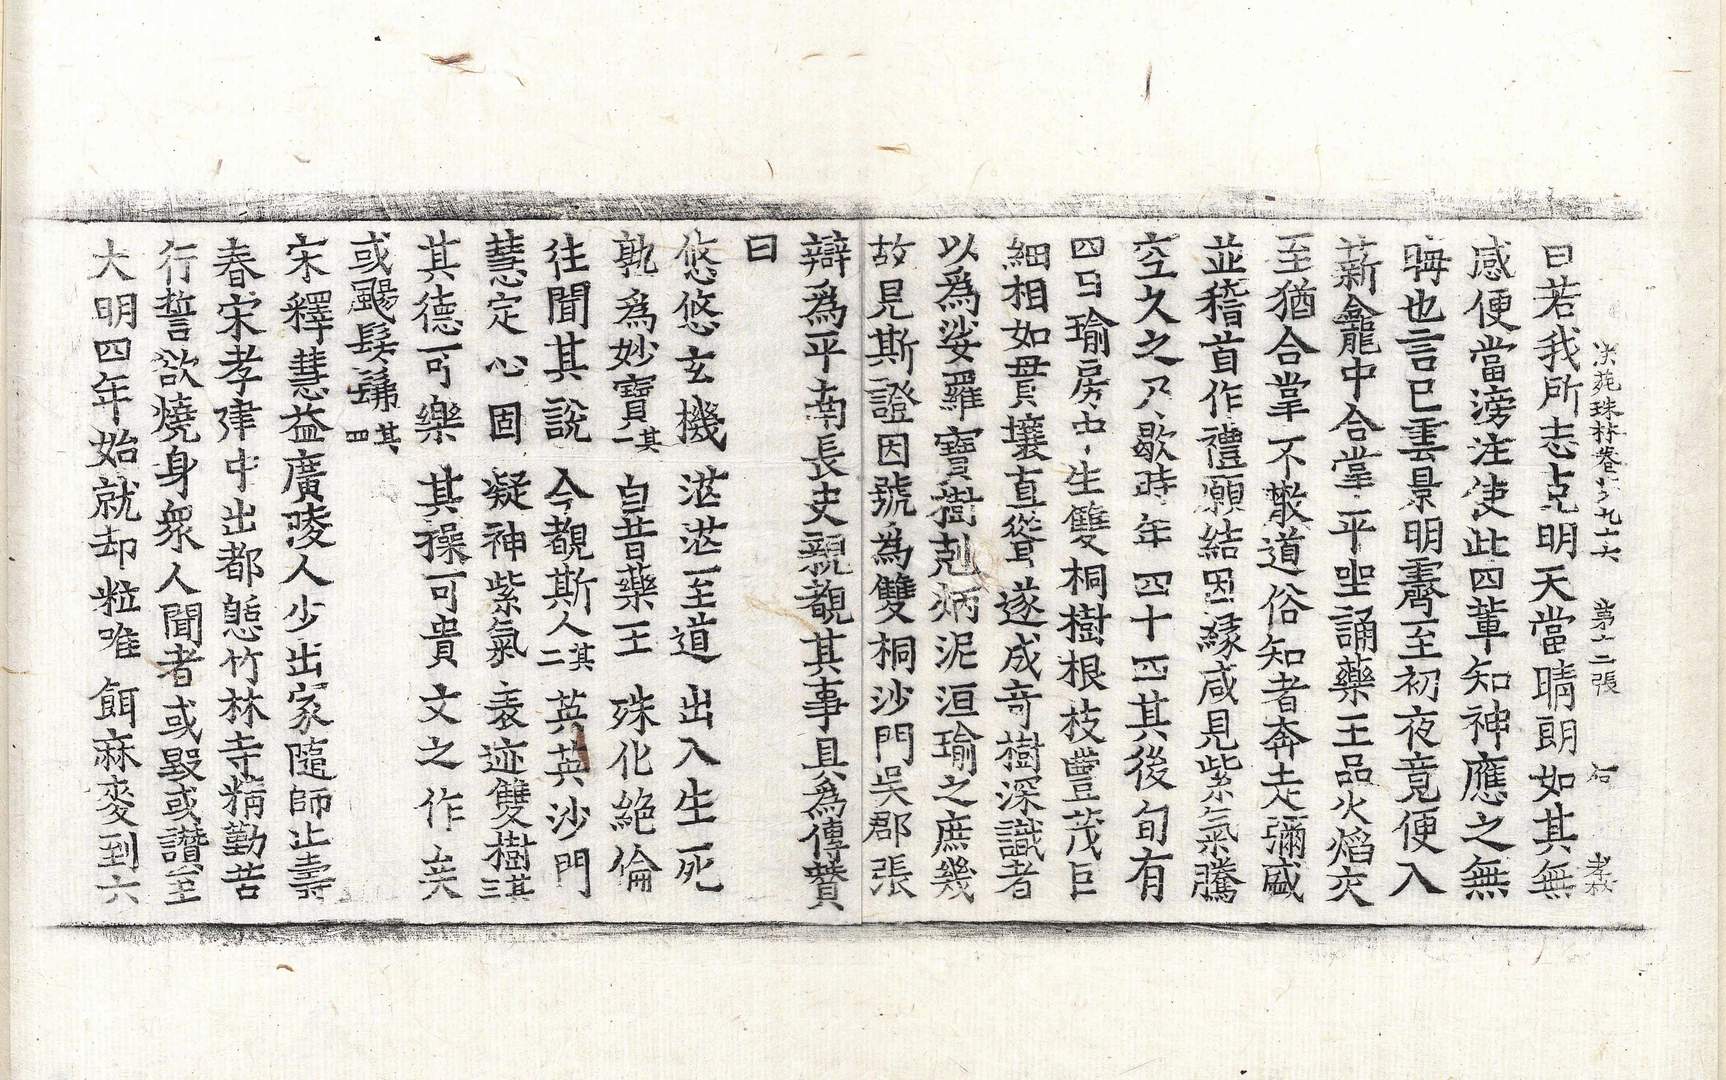 法苑珠林卷第九十六 第十二張 石 孝
曰若我所志克明天當晴朗如其無
感便當滂注使此四輩知神應之無
晦也言已雲景明霽至初夜竟便入
薪龕中合掌平坐誦藥王品火焰交
至猶合掌不散道俗知者奔走彌盛
並稽首作禮願結因緣咸見紫氣騰
空久之乃歇時年四十四其後旬有
四日瑜房中生雙桐樹根枝豐茂巨
細相如貫壤直聳遂成奇樹深識者
以爲娑羅寶樹剋炳泥洹瑜之庶幾
故見斯證因號爲雙桐沙門吳郡張
辯爲平南長史親覩其事具爲傳贊
曰
悠悠玄機 茫茫至道 出入生死
孰爲妙寶其一 自昔藥王 殊化絕倫
往聞其說 今覩斯人其二 英英沙門
慧定心固 凝神紫氣 表迹雙樹其三
其德可樂 其操可貴 文之作矣
或颺髣髴其四
宋釋慧益廣陵人少出家隨師止壽
春宋孝建中出都憩竹林寺精勤苦
行誓欲燒身衆人聞者或毀或讚至
大明四年始就却粒唯餌麻麥到六